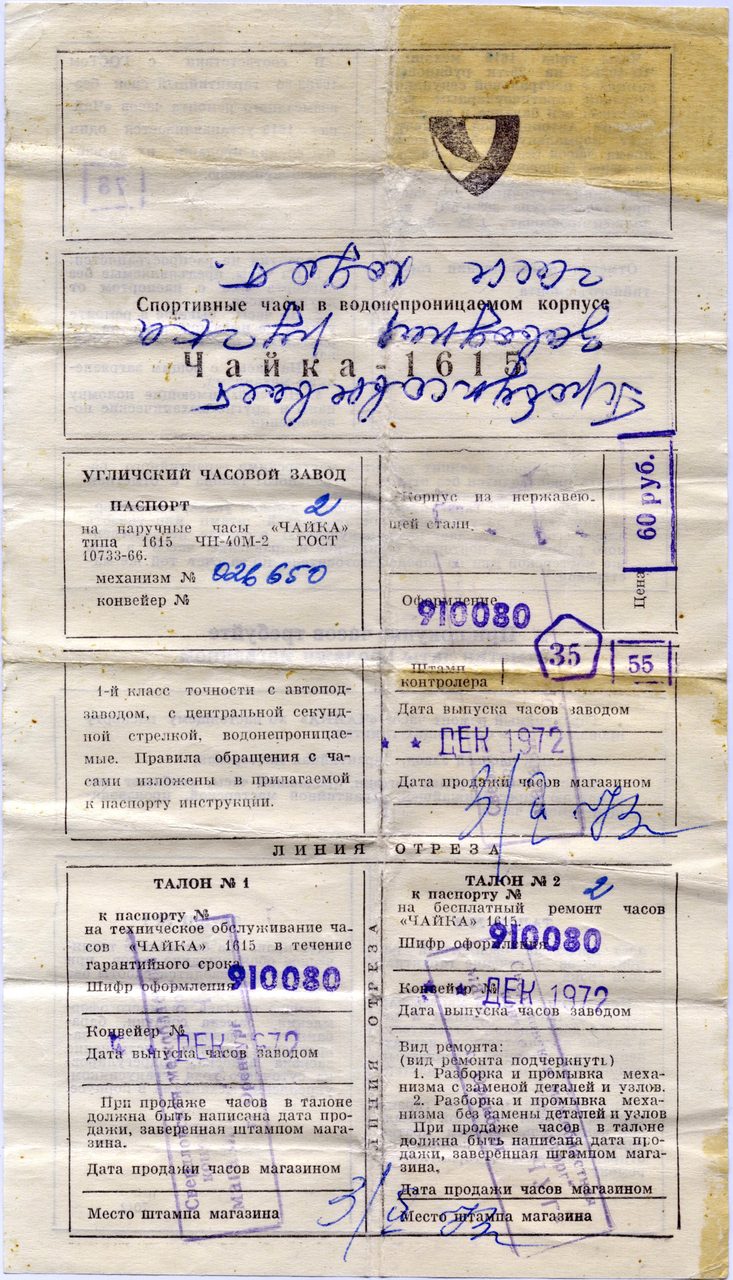 Спортивные часы в водонепроницаемом корпусе
Чайка-1615
Пробуксовывает
заводная ручка
часы ходят.
УГЛИЧСКИЙ ЧАСОВОЙ ЗАВОД
ПАСПОРТ 2
на наручные часы «ЧАЙКА»
типа 1615 ЧН-40М-2 ГОСТ
10733-66.
механизм № 029650
конвейер №
Корпус из нержавею-
щей стали.
Оформление
910080
Цена
60 руб.
1-й класс точности с автопод-
заводом, с центральной секунд-
ной стрелкой, водонепроницае-
мые. Правила обращения с ча-
сами изложены в прилагаемой
к паспорту инструкции.
35
55
Штамп
контролера
Дата выпуска часов заводом
ДЕК 1972
Дата продажи часов магазином
ЛИНИЯ ОТРЕЗА
ТАЛОН № 1
к паспорту №
на техническое обслуживание ча-
сов «ЧАЙКА» 1615 в течение
гарантийного срока
Шифр оформления 910080
Конвейер №
ДЕК 1972
Дата выпуска часов заводом
При продаже часов в талоне
должна быть написана дата про-
дажи, заверенная штампом мага-
зина.
Дата продажи часов магазином
Место штампа магазина
ЛИНИЯ ОТРЕЗА
ТАЛОН № 2
к паспорту № 2
на бесплатный ремонт часов
«ЧАЙКА» 1615
Шифр оформления 910080
Конвейер №
ДЕК 1972
Дата выпуска часов заводом
Вид ремонта:
(вид ремонта подчеркнуть)
1. Разборка и промывка меха-
низма с заменой деталей и узлов.
2. Разборка и промывка меха-
низма без замены деталей и узлов
При продаже часов в талоне
должна быть написана дата про-
дажи, заверенная штампом мага-
зина.
Дата продажи часов магазином
Место штампа магазина